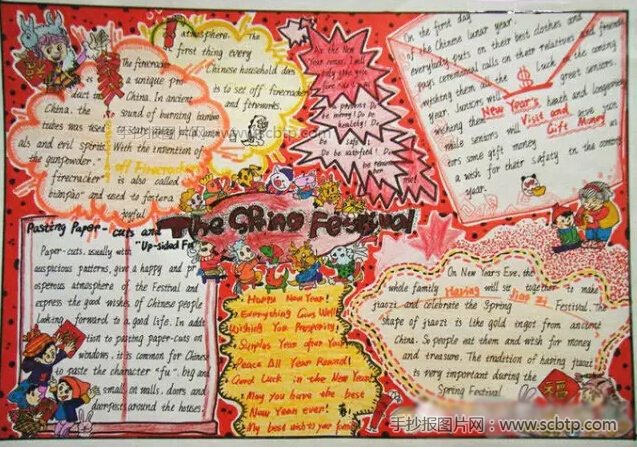 The firecracker
is a unique pro-
duct in China. In ancient
China, the sound of burning bamboo
tubes was used
als and evil spirits. With the invention of
the gunpowder,"
off Firecracker
firecracker" is also called
"bianpao" and used to foster a
joyful
atmosphere. The
first thing every
Chinese household does
is to set off firecracker
and fireworks.
As the New
Year
On the first day
of the Chinese lunar year,
everybody puts on their best clothes and
pays ceremonial calls on their relatives and friends
wishing them all the Luck in the coming
year. Juniors will greet seniors.
wishing them health and longevity
New Year's
Visit and
Gift Money
while seniors will give jun
iors some gift money
a wish for their safety in the coming
year.
The Spring Festival
Pasting Paper-cuts and
"Up-sided Fu"
Paper-cuts, usually with
auspicious patterns, give a happy and pr
osperous atmosphere of the Festival and
express the good wishes of Chinese people
looking forward to a good life. In addi
tion to pasting paper-cuts on
windows, it is common for Chinese
to paste the character "fu", big and
small, on walls, doors and
doorposts around the houses.
Happy New Year!
Everything Goes Well!
Wishing You Prosperity!
Surplus Year after Year
Peace All Year Round!
Good Luck in the New Year!
May you have the best
New Year ever!
My best wish to your family
On New Year's Eve, the
whole family will sit together to make
Having
Jiao Zi
jiaozi and celebrate the Spring Festival. The
shape of jiaozi is like gold ingot from ancient
China. So people eat them and wish for money
and treasure. The tradition of having jiaozi
is very important during the
Spring Festival
福
手抄报图片网 www.scbtp.com
手抄报图片网：www.scbtp.com